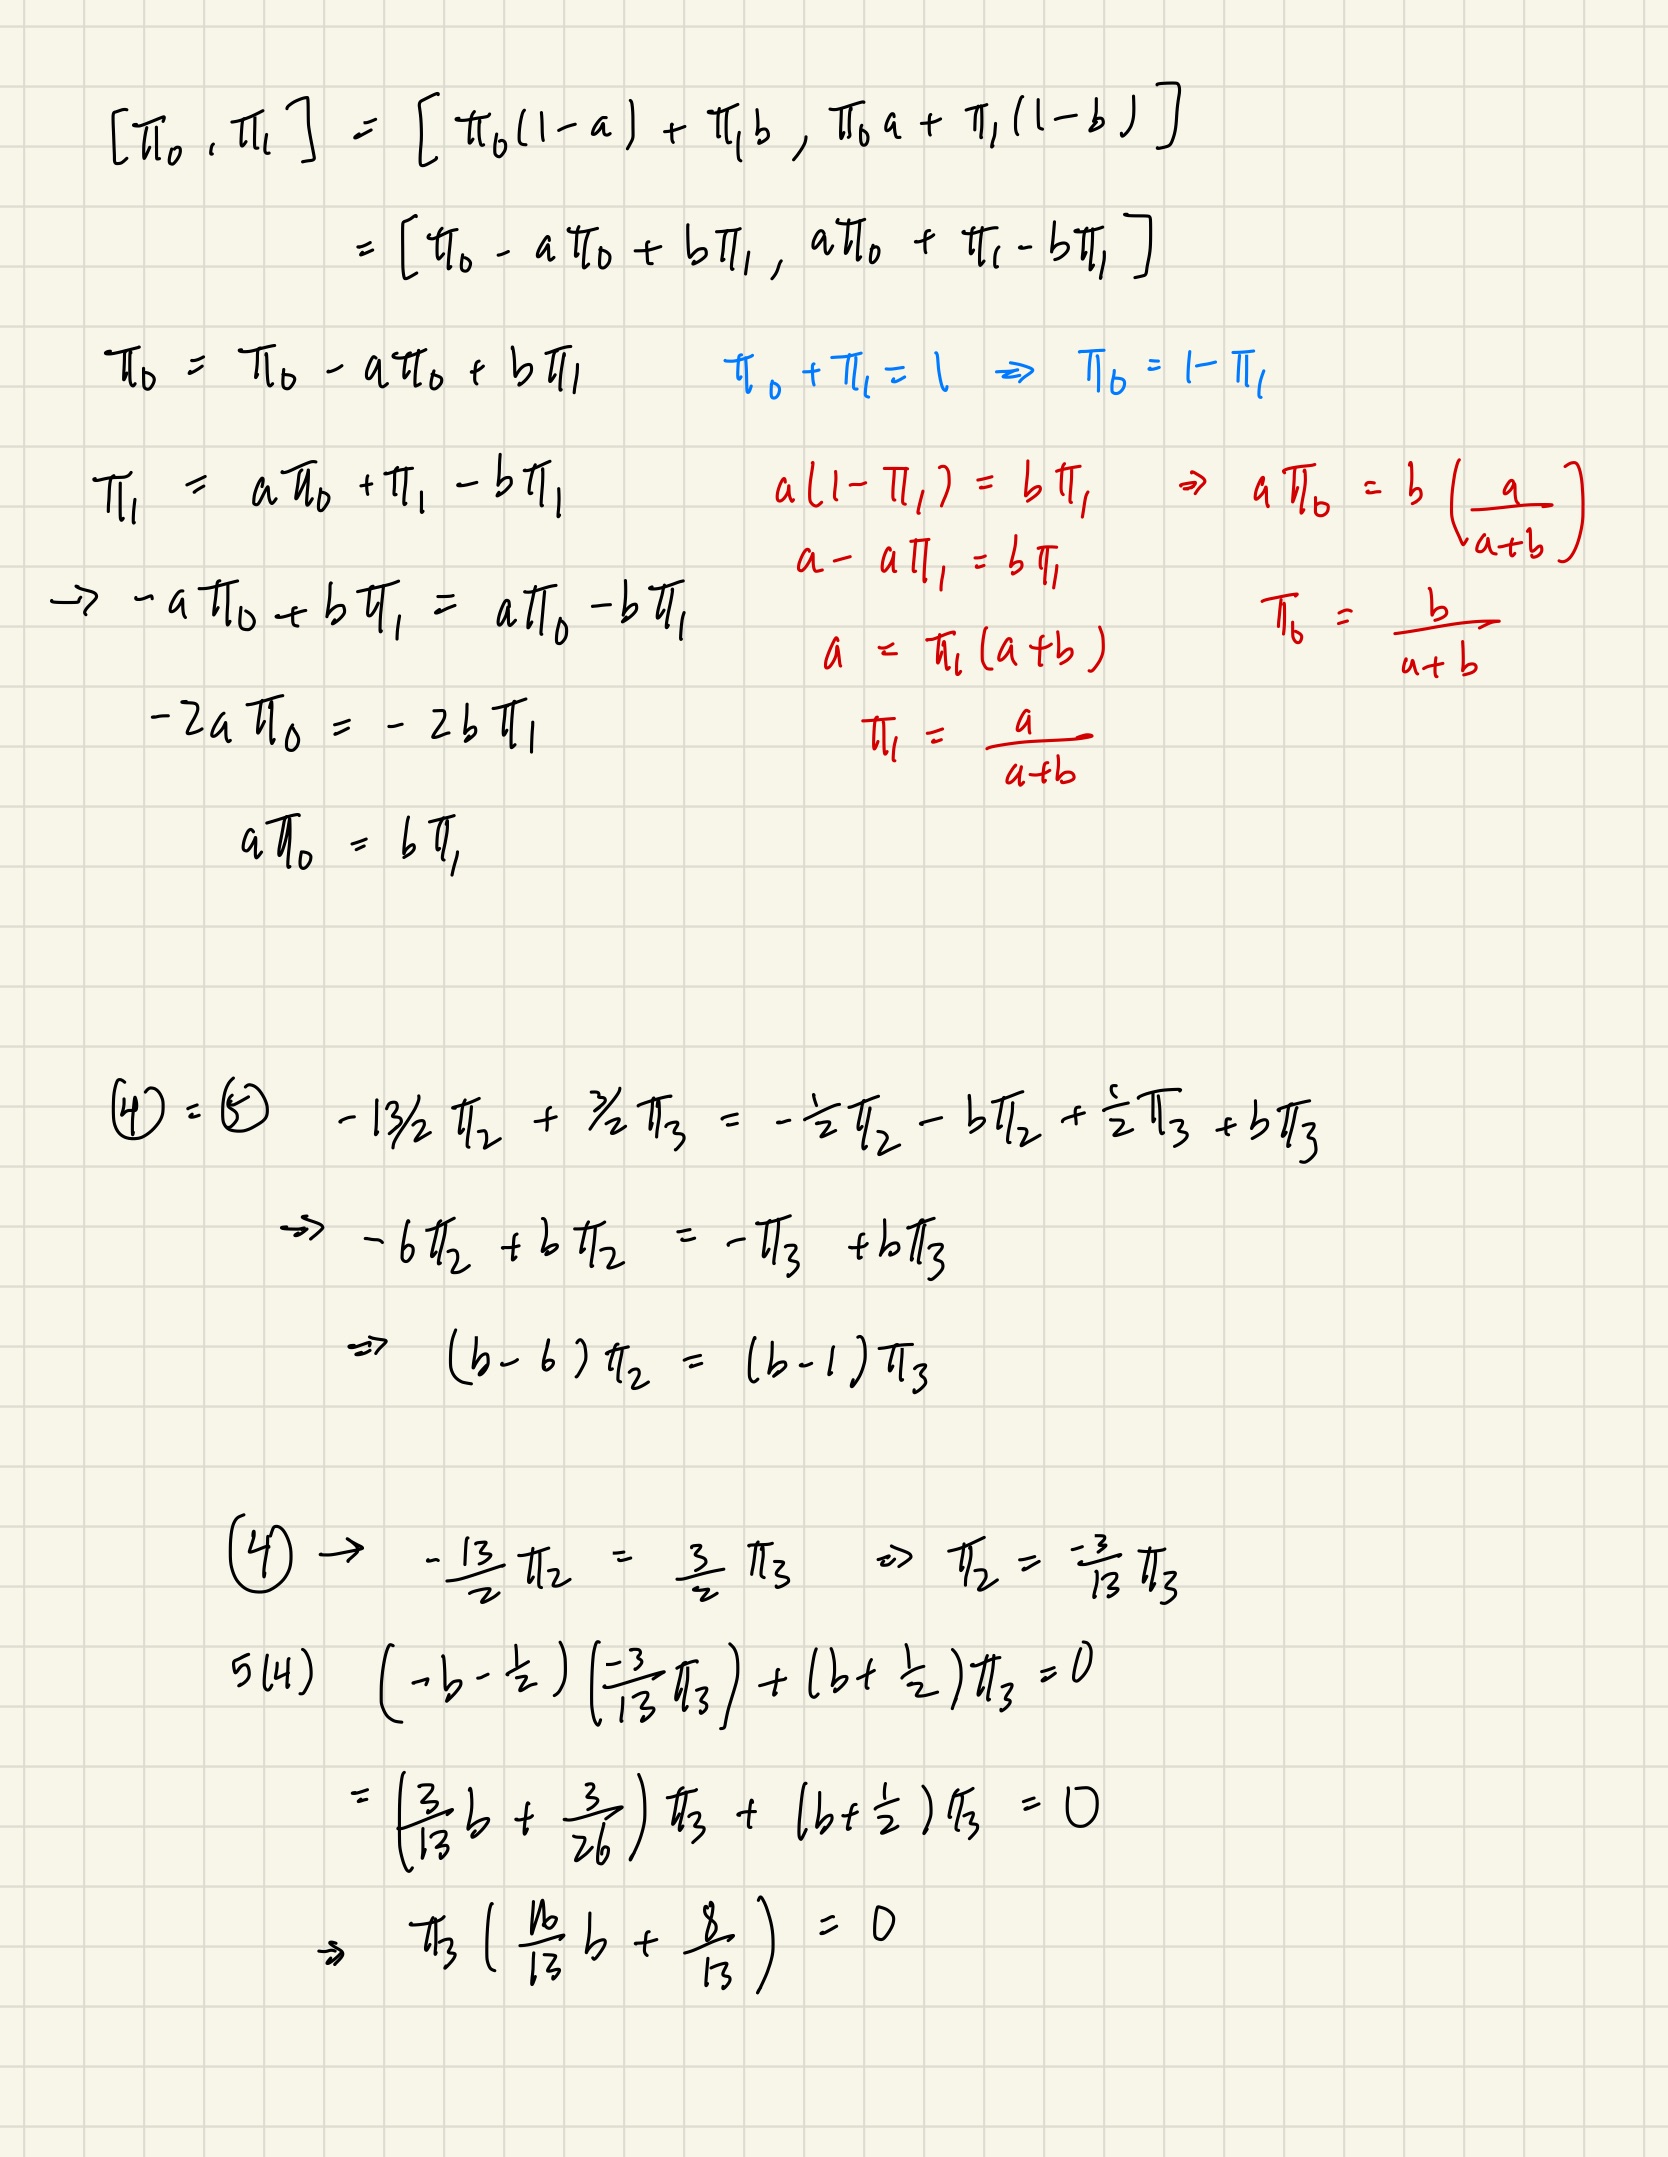 [π₀, π₁] = [π₀(1-a) + π₁b, π₀a + π₁(1-b)]
= [π₀ - aπ₀ + bπ₁, aπ₀ + π₁ - bπ₁]
π₀ = π₀ - aπ₀ + bπ₁
π₀ + π₁ = 1 ⇒ π₀ = 1 - π₁
π₁ = aπ₀ + π₁ - bπ₁
→ -aπ₀ + bπ₁ = aπ₀ - bπ₁
-2aπ₀ = -2bπ₁
aπ₀ = bπ₁
a(1-π₁) = bπ₁ ⇒ aπ₀ = b(a/(a+b))
a - aπ₁ = bπ₁
a = π₁(a+b)
π₁ = a/(a+b)
π₀ = b/(a+b)
④ = ⑤ -13/2 π₂ + 3/2 π₃ = -1/2 π₂ - bπ₂ + 1/2 π₃ + bπ₃
⇒ -6π₂ + bπ₂ = -π₃ + bπ₃
⇒ (b-6)π₂ = (b-1)π₃
④ → -13/2 π₂ = 3/2 π₃ ⇒ π₂ = -3/13 π₃
5(4) (-b-1/2)(-3/13 π₃) + (b+1/2)π₃ = 0
= (3/13 b + 3/26)π₃ + (b+1/2)π₃ = 0
⇒ π₃(16/13 b + 8/13) = 0